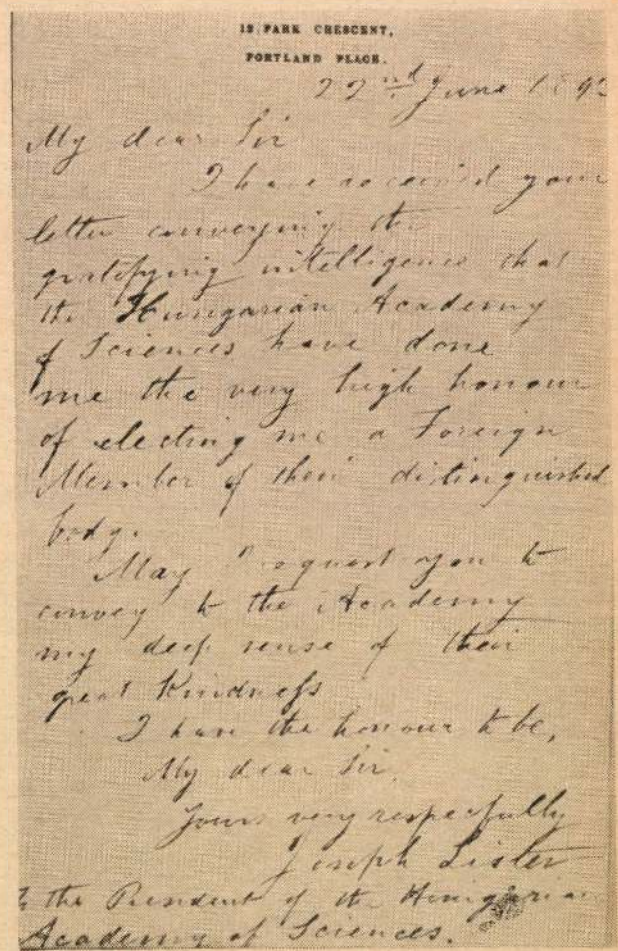 12 PARK CRESCENT,
PORTLAND PLACE.
22nd June 1893
My dear Sir
I have received your
letter conveying the
gratifying intelligence that
the Hungarian Academy
of Sciences have done
me the very high honour
of electing me a Foreign
Member of their distinguished
body.
May I request you to
convey to the Academy
my deep sense of their
great Kindness
I have the honour to be,
My dear Sir,
Yours very respecfully
Joseph Lister
To the President of the Hungarian
Academy of Sciences.